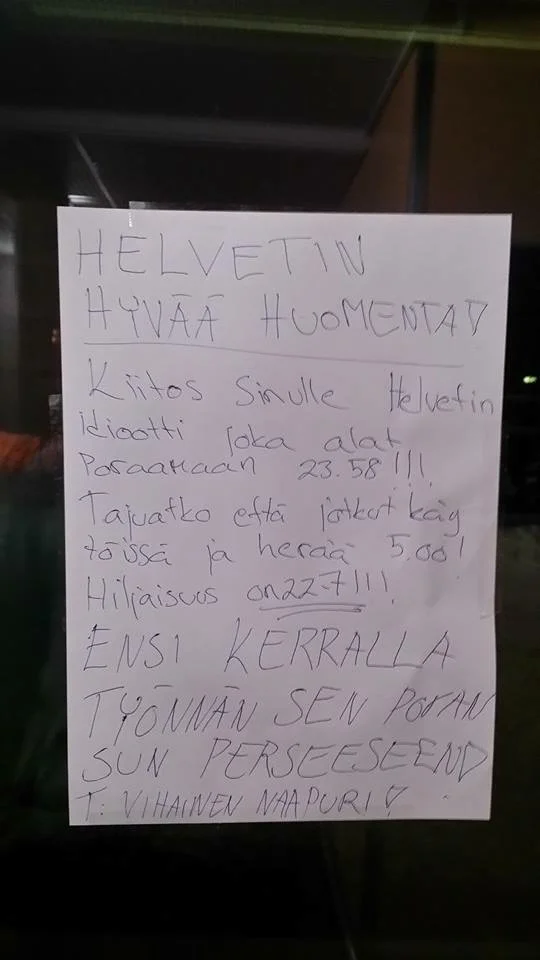 HELVETIN
HYVÄÄ HUOMENTA!
Kiitos Sinulle Helvetin
idiootti joka alat
Poraamaan 23.58!!!
Tajuatko että jotkut käy
töissä ja herää 5.00!
Hiljaisuus on 22-7!!!
ENSI KERRALLA
TYÖNNÄN SEN PORAN
SUN PERSEESEEN!
T: VIHAINEN NAAPURI!